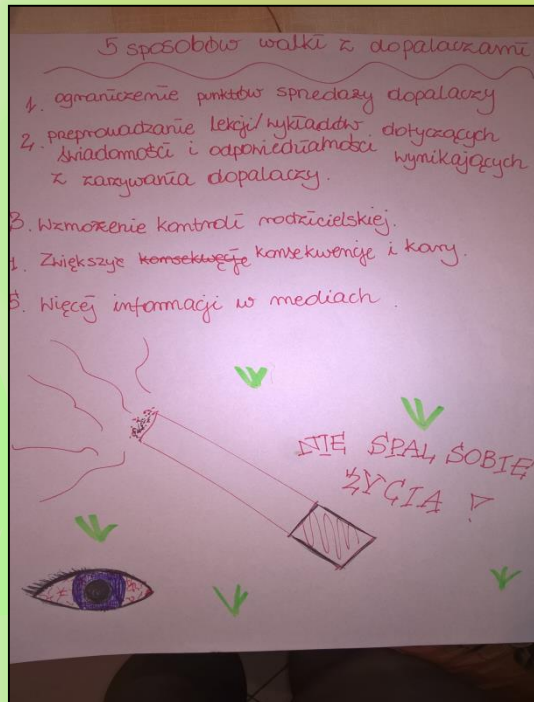 5 sposobów walki z dopalaczami
1. ograniczenie punktów spredaży dopalaczy
2. preprowadzanie lekcji/wykładów dotyczących
świadomości i odpowiedialności wynikających
z zarzywania dopalaczy.
3. Wzmorzenie kontroli rodzicielskiej.
4. Zwiększyc konsekwęcje konsekwencje i kary.
5. Więcej informacji w mediach.
NIE SPAL SOBIE
ŻYCIA !